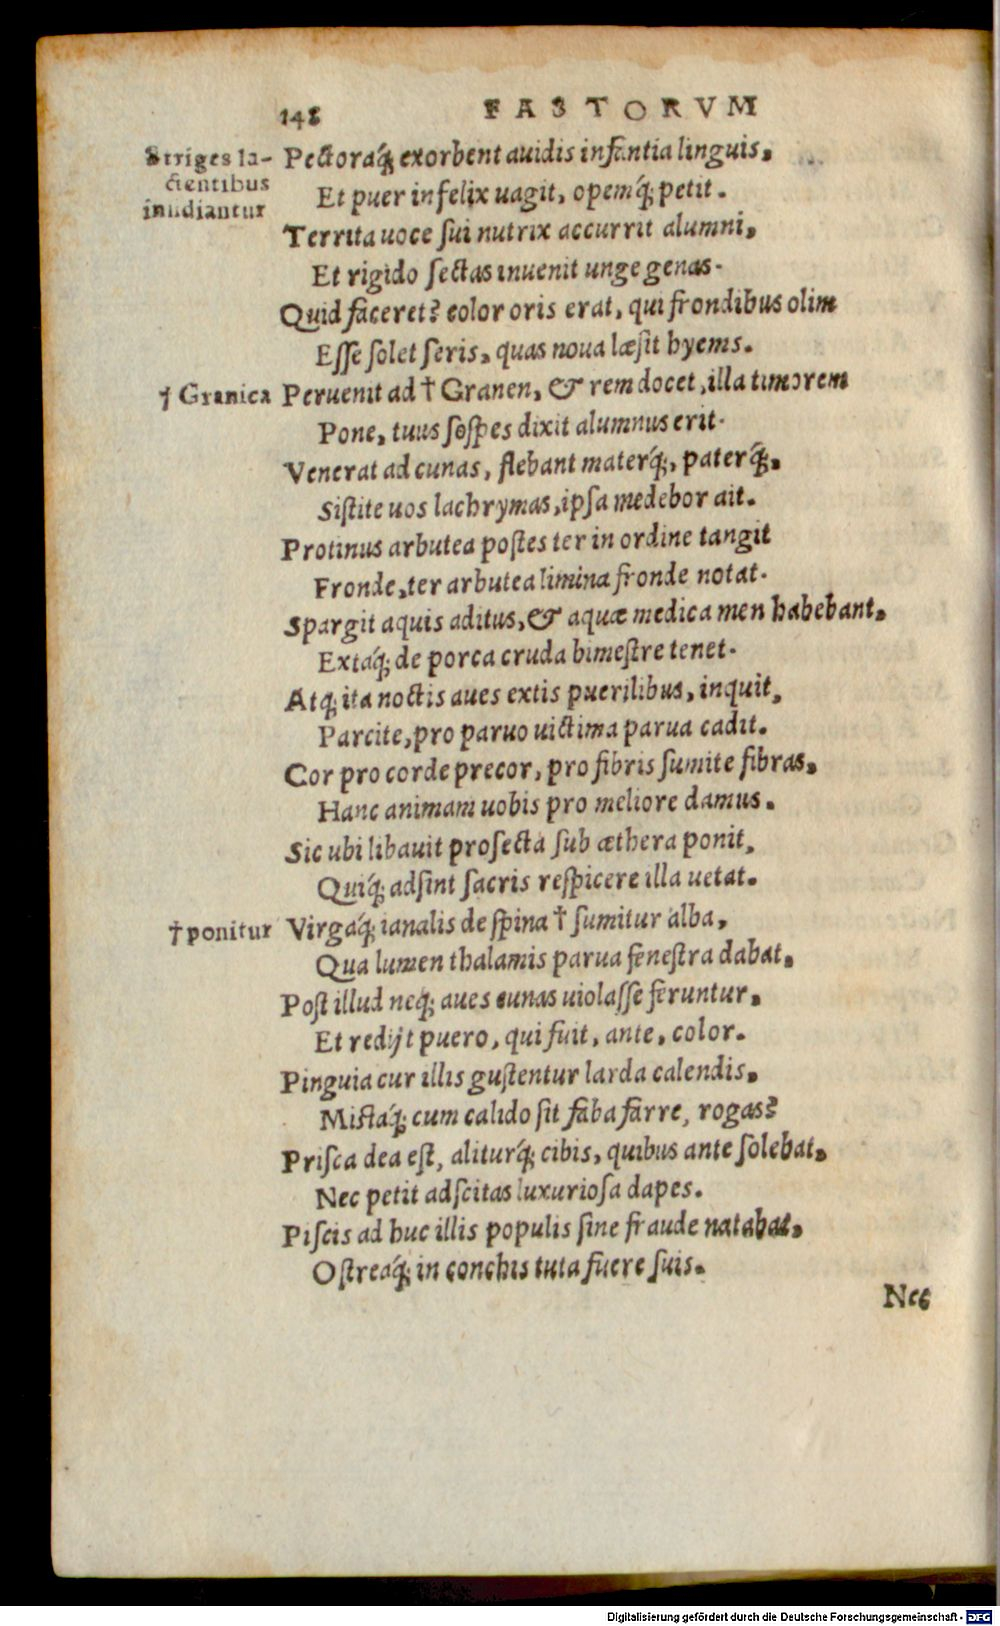 148 FASTORVM
Striges la-
ctentibus
inuidiantur
Pectoraq́; exorbent auidis infantia linguis,
Et puer infelix uagit, opemq́; petit.
Territa uoce sui nutrix accurrit alumni,
Et rigido sectas inuenit unge genas.
Quid faceret? color oris erat, qui frondibus olim
Esse solet seris, quas noua læsit hyems.
† Granica
Peruenit ad † Granen, & rem docet, illa timorem
Pone, tuus sospes dixit alumnus erit.
Venerat ad cunas, flebant materq́;, paterq́;,
Sistite uos lachrymas, ipsa medebor ait.
Protinus arbutea postes ter in ordine tangit
Fronde, ter arbutea limina fronde notat.
Spargit aquis aditus, & aquæ medica men habebant,
Extaq́; de porca cruda bimestre tenet.
Atq; ita noctis aues extis puerilibus, inquit,
Parcite, pro paruo uictima parua cadit.
Cor pro corde precor, pro fibris sumite fibras,
Hanc animam uobis pro meliore damus.
Sic ubi libauit prosecta sub æthera ponit,
Quiq́; adsint sacris respicere illa uetat.
† ponitur
Virgaq́; ianalis de spina † sumitur alba,
Qua lumen thalamis parua fenestra dabat,
Post illud neq; aues cunas uiolasse feruntur,
Et redijt puero, qui fuit, ante, color.
Pinguia cur illis gustentur larda calendis,
Mistaq́; cum calido sit faba farre, rogas?
Prisca dea est, aliturq́; cibis, quibus ante solebat,
Nec petit adscitas luxuriosa dapes.
Piscis ad huc illis populis sine fraude natabat,
Ostreaq́; in conchis tuta fuere suis.
Nec
Digitalisierung gefördert durch die Deutsche Forschungsgemeinschaft - DFG